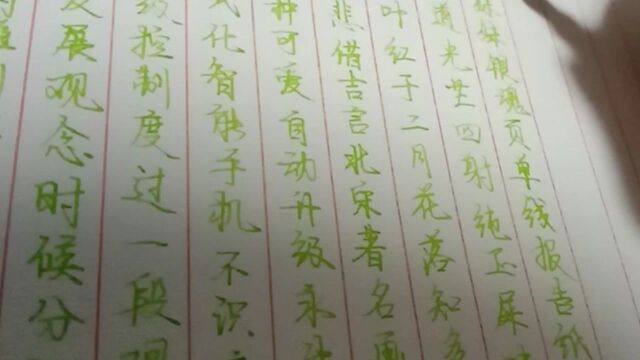 单线报告
体银魂页
道光芒四射纯玉屎
叶红于二月花落知多
悲借吉言北宋著名画
种可爱自动升级永
式化智能手机不识
控制度过一段
发展观念时候分